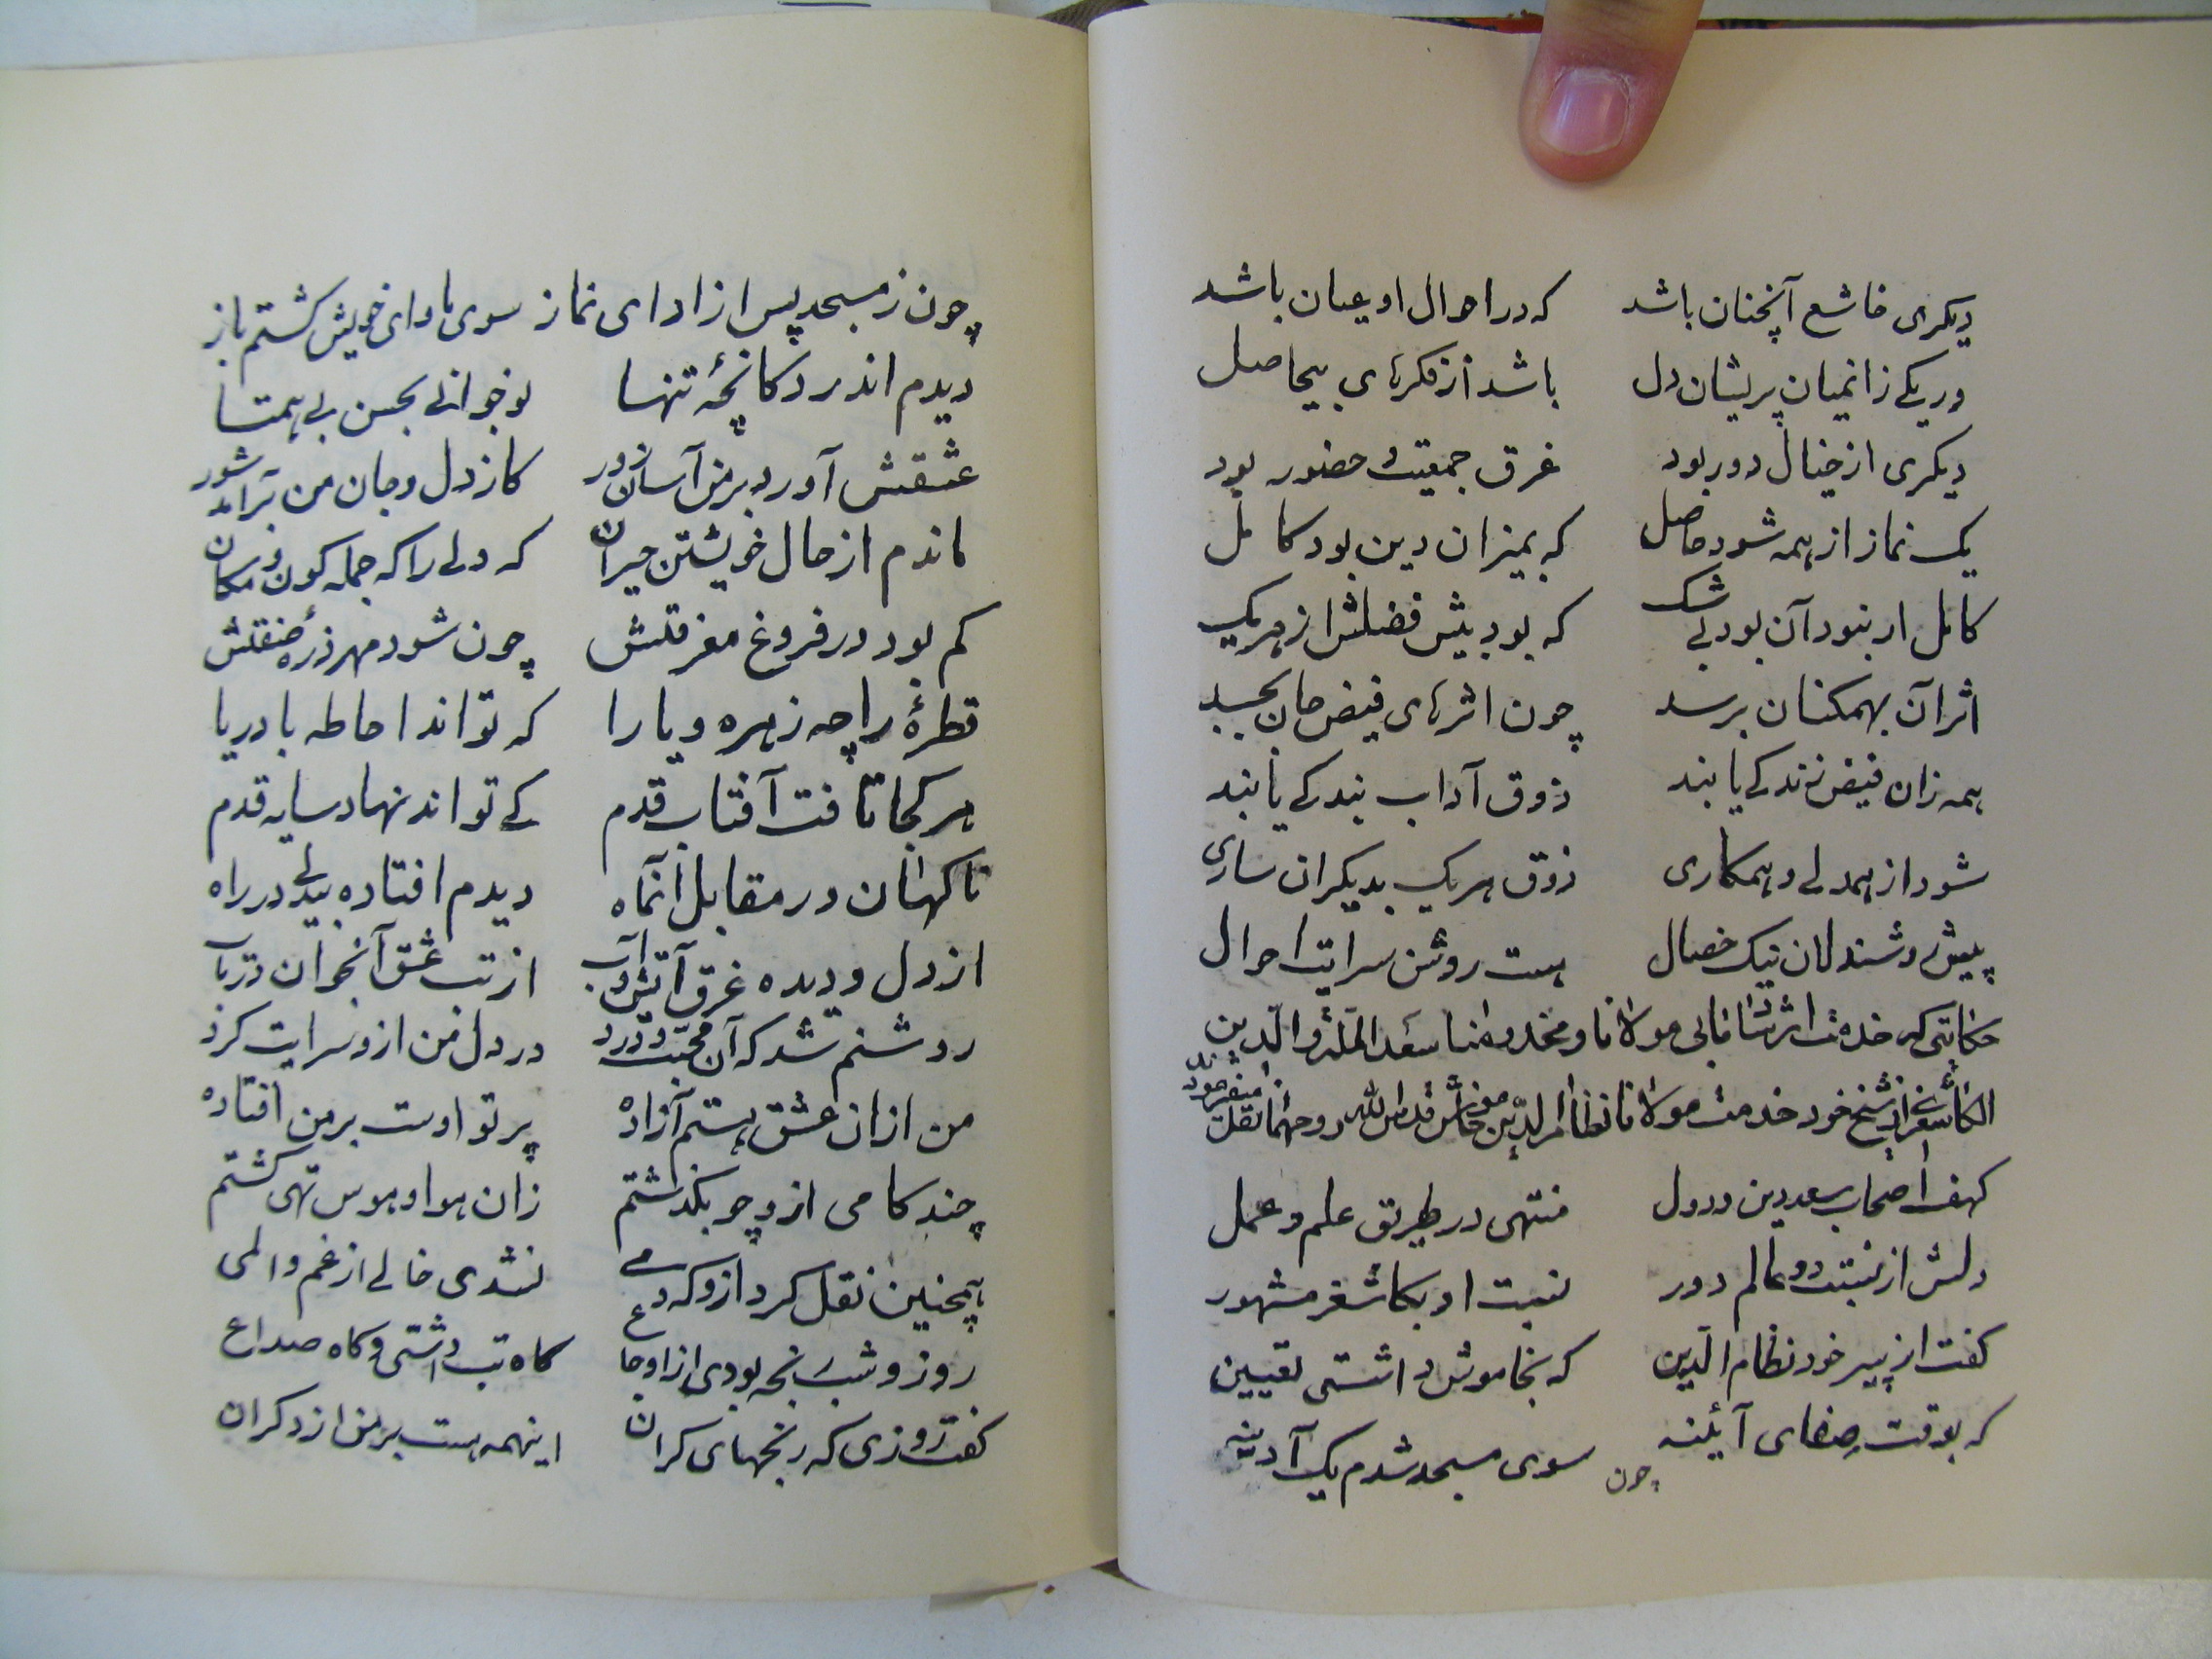 دیکری خاشع آنچنان باشد که در احوال او عیان باشد
ور یکے زانمیان پریشان دل باشد از فکرهای بیحاصل
دیکری از خیال دور بود غرق جمعیت و حضور بود
یک نماز از همه شود حاصل که بمیزان دین بود کامل
کامل ار نبود آن بود بی شک که بود بیش فضلش از هر یک
اثر آن بهمکنان برسد چون اثرهای فیض جان بجسد
همه زان فیض زندکے یابند ذوق آداب بندکے یابند
شود از همدلے و همکاری ذوق هر یک بدیکران ساری
پیش روشندلان نیک خصال هست روشن سرایت احوال
حکایتی که خدمت ارشاد مابی مولانا و مخدومنا سعد الملة والدین
الکاشغری از شیخ خود خدمت مولانا نظام الدین خاموش قدس الله روحهما نقل میفرمودند
کهف اصحاب سعد دین و دول منتهی در طریق علم و عمل
دلش از نسبت دو عالم دور نسبت او بکاشغر مشهور
کفت از پیر خود نظام الدین که بخاموش داشتی تعیین
که بوقت صفای آیئنه سوی مسجد شدم یک آدینه
چون
چون ز مسجد پس از ادای نماز سوی ماوای خویش کشتم باز
دیدم اندر دکانچهٔ تنها نوجوانے بحسن بے همتا
عشقش آورد بر من آسان زور کاز دل و جان من برآمد شور
ماندم از حال خویشتن حیران که دلے را که جمله کون و مکان
کم بود در فروغ مغز قلش چون شود مهر ذرهٔ صنقلش
قطرهٔ را چه زهره و یارا که تواند احاطه با دریا
هر کجا تافت آفتاب قدم کے تواند نهاد سایه قدم
ناکهان در مقابل آنماه دیدم افتاده بیدلے در راه
از دل و دیده غرق آتش و آب از تب عشق آنجوان در تاب
روشنم شد که آن محبت و درد در دل من از و سرایت کرد
من از ان عشق هستم آزاده پرتو اوست بر من افتاده
چند کامی از و چو بکذشتم زان هوا و هوس تهی کشتم
همچنین نقل کرد از و که دمے نشدی خالے از غم و المی
روز و شب رنجه بودی از اوجاع کاه تب داشتی و کاه صداع
کفت روزی که رنجهای کران اینهمه هست بر من از دکران